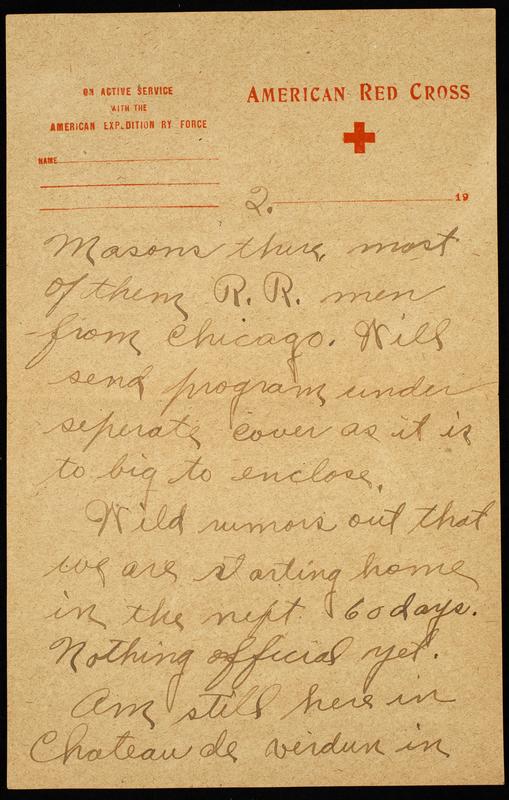 ON ACTIVE SERVICE
WITH THE
AMERICAN EXPEDITION RY FORCE
NAME
AMERICAN RED CROSS
2. 19
Masons there, most
of them R. R. men
from Chicago. Will
send program under
seperate cover as it is
to big to enclose.
Wild rumors out that
we are starting home
in the next 60 days.
Nothing official yet.
Am still here in
Chateau de verdun in